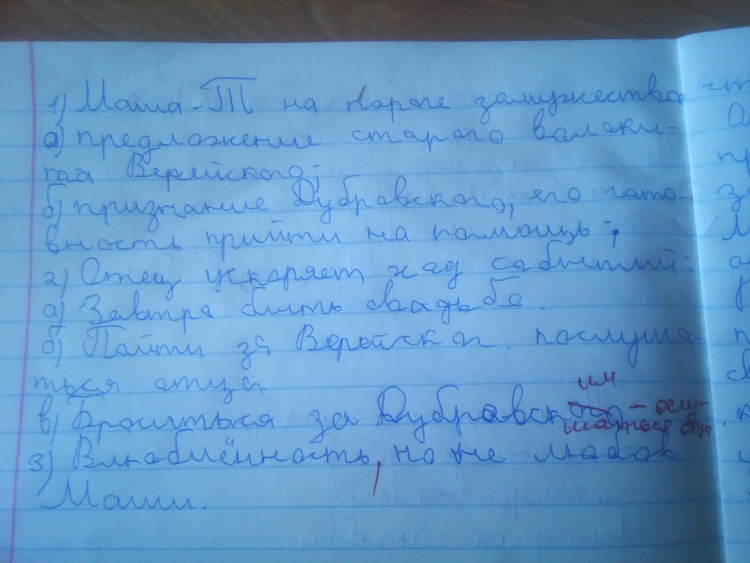 1) Маша - Т на пороге замужества
а) предложение старого волоки-
таа Верейского;
б) признание Дубровского, его гото-
вность прийти на помощь;
2) Отец ускоряет ход событий:
а) Завтра быть свадьбе.
б) Пойти за Верейског. послуша-
ться отца
им
в) Броситься за Дубровского - ослу-
шаться отца
3) Влюблённость, но не любовь
Маши.